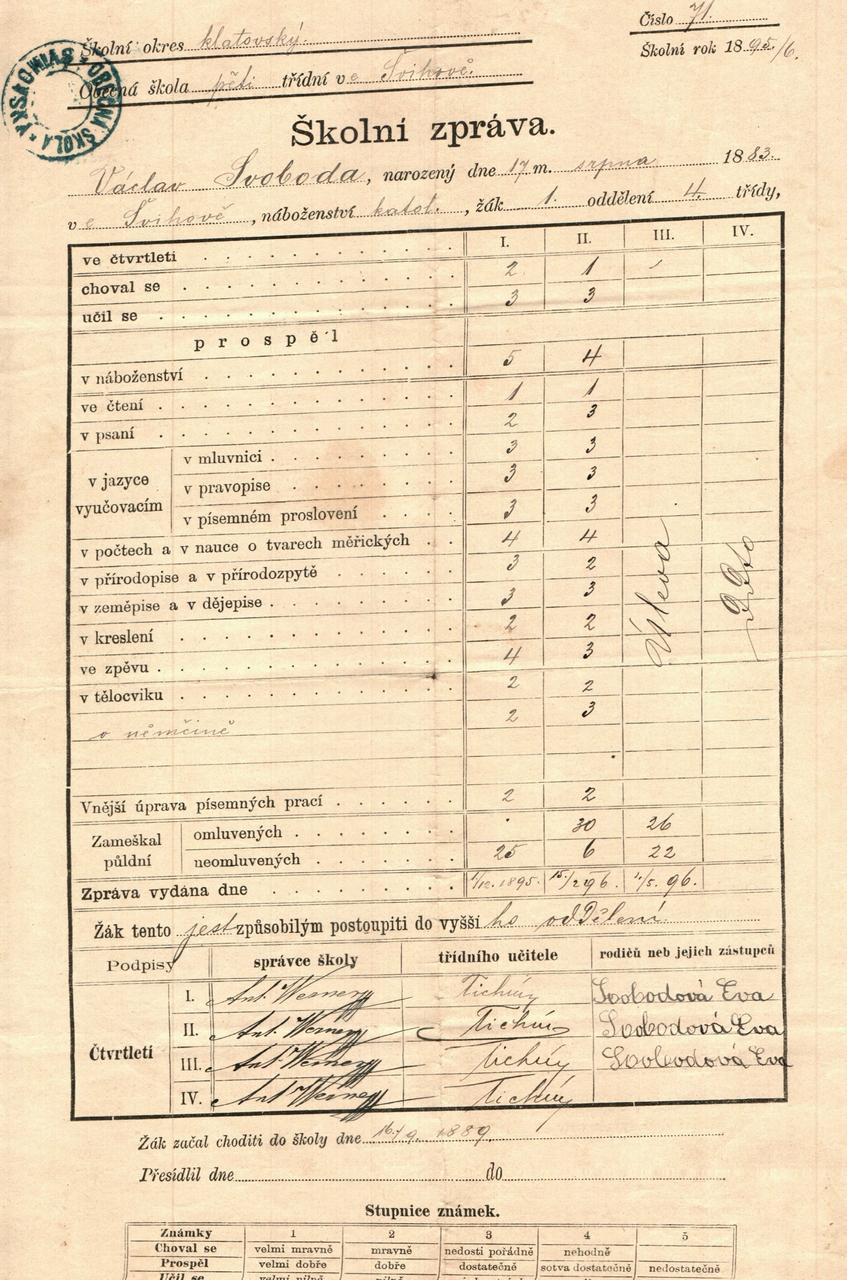 Číslo 71.
Školní okres klatovský.
Školní rok 1895/6.
Obecná škola pěti třídní ve Švihově.
OBECNÁ ŠKOLA
Školní zpráva.
Václav Svoboda, narozený dne 17 m. srpna 1883
ve Švihově, náboženství katol., žák 1. oddělení 4. třídy,
ve čtvrtletí I. II. III. IV.
choval se 2 1
učil se 3 3
prospěl
v náboženství 5 4
ve čtení 1 1
v psaní 2 3
v jazyce vyučovacím
v mluvnici 3 3
v pravopise 3 3
v písemném proslovení 3 3
v počtech a v nauce o tvarech měřických 4 4
v přírodopise a v přírodozpytě 3 2
v zeměpise a v dějepise 3 3
v kreslení 2 2
ve zpěvu 4 3
v tělocviku 2 2
v němčině 2 3
Úleva
Vnější úprava písemných prací 2 2
Zameškal půldní
omluvených . 30 26
neomluvených 25 6 22
Zpráva vydána dne 1/12. 1895. 15./2 96. 1./5. 96.
Žák tento jest způsobilým postoupiti do vyššího oddělení
Podpisy správce školy třídního učitele rodičů neb jejich zástupců
Čtvrtletí
I. Ant. Werner Tichý Svobodová Eva
II. Ant. Werner Tichý Svobodová Eva
III. Ant. Werner Tichý Svobodová Eva
IV. Ant. Werner Tichý
Žák začal choditi do školy dne 16./9. 1889.
Přesídlil dne do
Stupnice známek.
Známky 1 2 3 4 5
Choval se velmi mravně mravně nedosti pořádně nehodně
Prospěl velmi dobře dobře dostatečně sotva dostatečně nedostatečně
Učil se velmi pilně